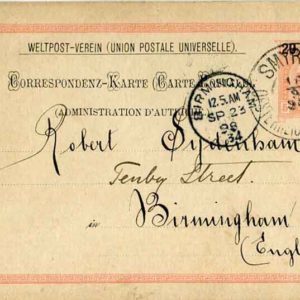 WELTPOST-VEREIN (UNION POSTALE UNIVERSELLE).
CORRESPONDENZ-KARTE (CARTE
(ADMINISTRATION D'AUTRICHE
20
SMYR
BIRMINGHAM
12.5.AM
SP 23
98
34
Robert Sydenham
Tenby Street.
in
Birmingham
(Engl